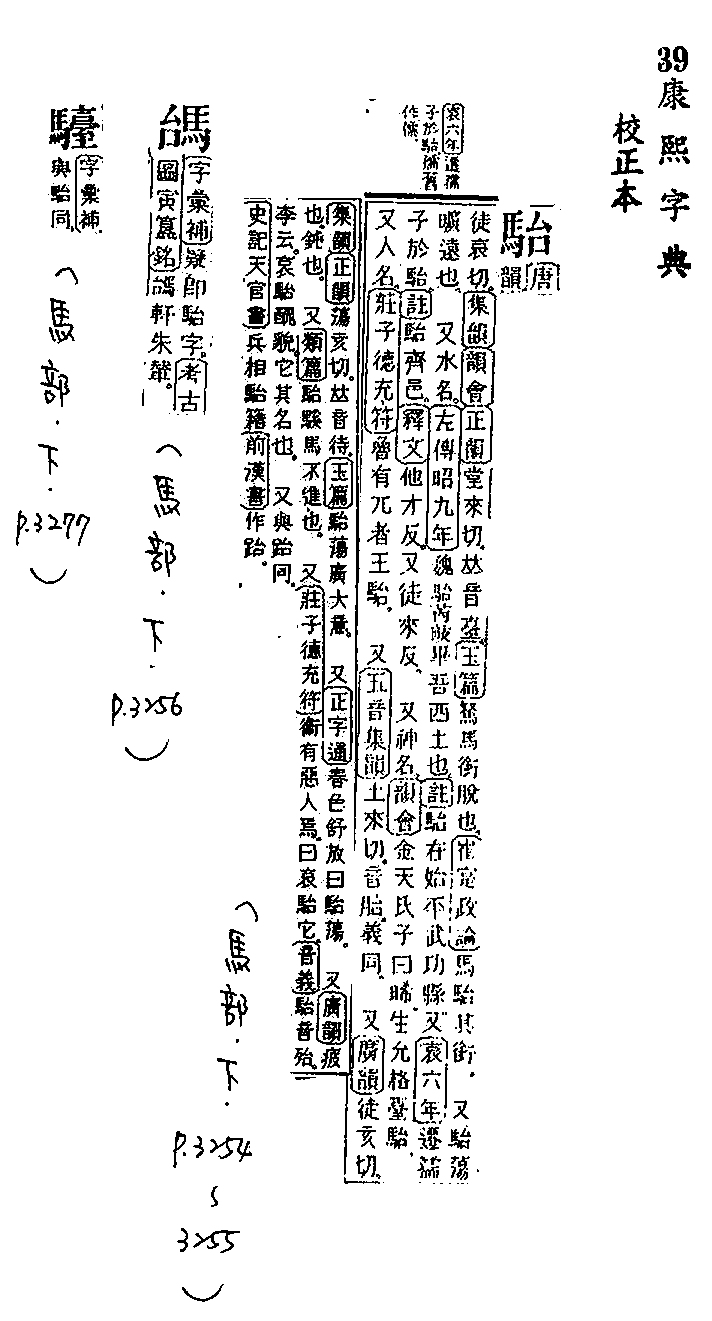 39康熙字典
校正本
駘 唐韻
徒哀切。集韻韻會正韻堂來切。𠀤音臺。玉篇駑馬銜脫也。崔寔政論馬駘其銜。 又駘蕩
曠遠也。 又水名。左傳昭九年魏駘芮岐畢吾西土也。註駘在始平武功縣。又哀六年遷孺
子於駘。註駘齊邑。釋文他才反。又徒來反。 又神名。韻會金天氏子曰昧。生允格臺駘。
又人名。莊子德充符魯有兀者王駘。 又五音集韻土來切。音胎。義同。 又廣韻徒亥切。
哀六年遷孺
子於駘孺舊
作儒。
集韻正韻蕩亥切。𠀤音待。玉篇駘蕩廣大意。 又正字通春色舒放曰駘蕩。 又廣韻疲
也。鈍也。 又類篇駘騃馬不進也。 又莊子德充符衞有惡人焉。曰哀駘它。音義駘音殆。
李云。哀駘醜貌。它其名也。 又與跆同。
史記天官書兵相駘籍前漢書作跆。
(馬部.下.
P.3254
~
3255
)
字彙補疑卽駘字。考古
圖寅簋銘 軒朱 。
(馬部.下.
P.3256
)
字彙補
與駘同。
(馬部.下.
P.3277
)